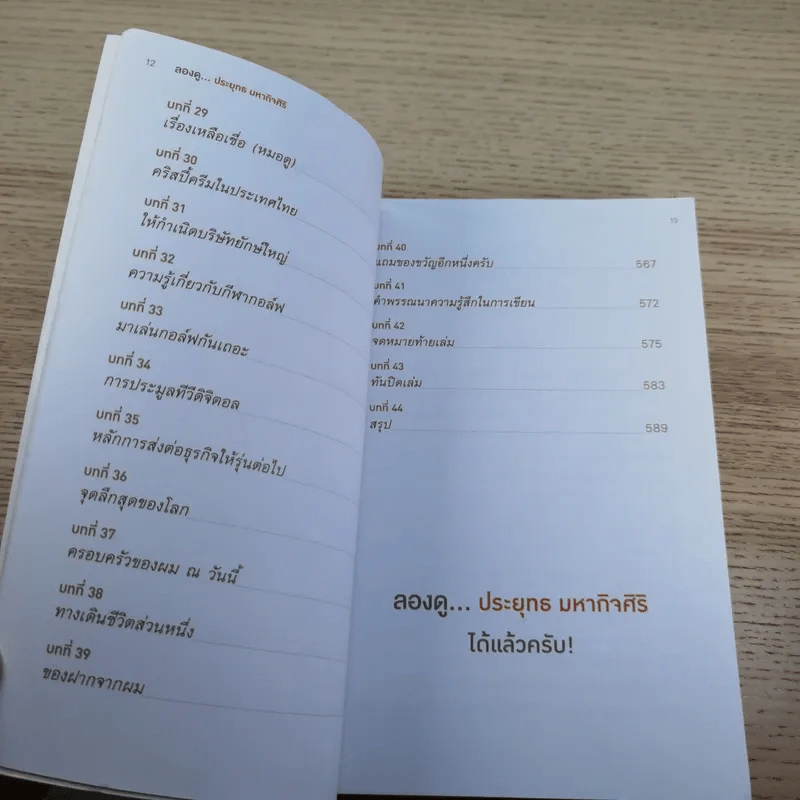 12 ลองดู... ประยุทธ มหากิจศิริ
บทที่ 29
เรื่องเหลือเชื่อ (หมอดู)
บทที่ 30
คริสปี้ครีมในประเทศไทย
บทที่ 31
ให้กำเนิดบริษัทยักษ์ใหญ่
บทที่ 32
ความรู้เกี่ยวกับกีฬากอล์ฟ
บทที่ 33
มาเล่นกอล์ฟกันเถอะ
บทที่ 34
การประมูลทีวีดิจิตอล
บทที่ 35
หลักการส่งต่อธุรกิจให้รุ่นต่อไป
บทที่ 36
จุดลึกสุดของโลก
บทที่ 37
ครอบครัวของผม ณ วันนี้
บทที่ 38
ทางเดินชีวิตส่วนหนึ่ง
บทที่ 39
ของฝากจากผม
บทที่ 40
แถมของขวัญอีกหนึ่งครับ 567
บทที่ 41
คำพรรณนาความรู้สึกในการเขียน 572
บทที่ 42
จดหมายท้ายเล่ม 575
บทที่ 43
ทันปิดเล่ม 583
บทที่ 44
สรุป 589
ลองดู... ประยุทธ มหากิจศิริ
ได้แล้วครับ!